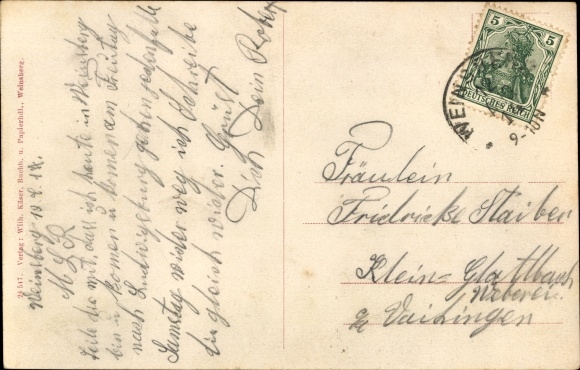 24517. Verlag: Wilh. Käser, Buchh. u. Papierhdl., Weinsberg.
Weinsberg
M. L. R
teile dir mit, daß ich heute in Weinsberg
bin u. komen u. komenden Freitag
nach Ludwigsburg gehen jedenfalls
Samstag wieder weg ich schreibe
Dir gleich wieder. Grüßt
Dich Dein Robert
5 5
DEUTSCHES REICH
WEINSBERG
9-10N
Fräulein
Fridricke Staiber
Klein-Glattbach
Vaihingen